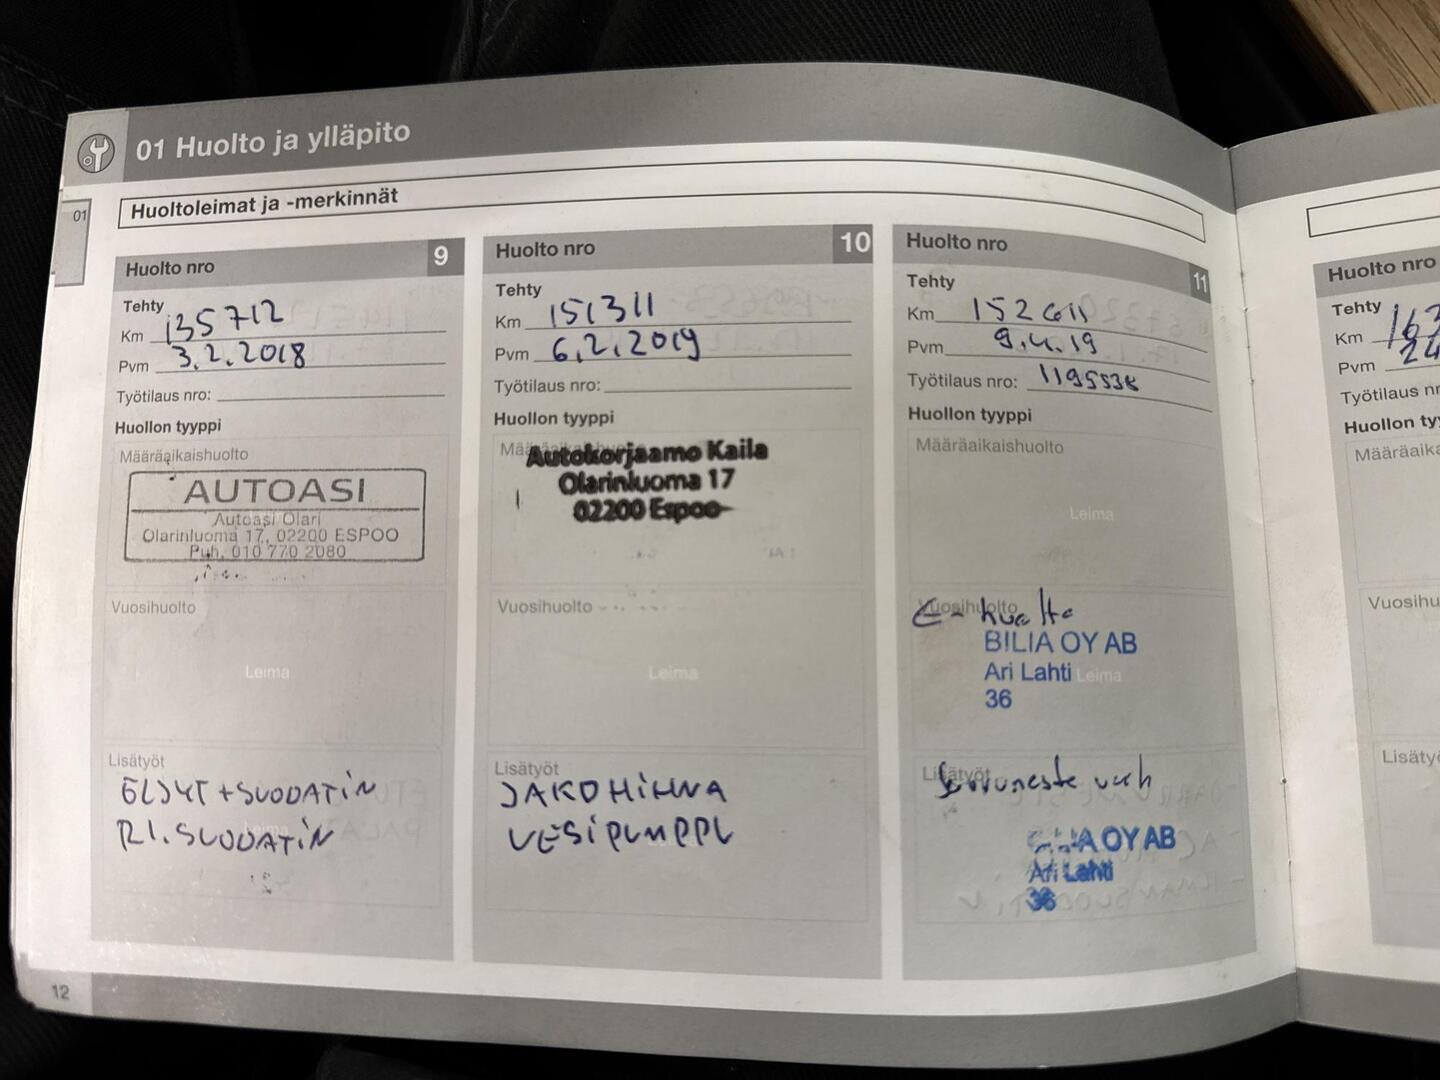 01 Huolto ja ylläpito
01
Huoltoleimat ja -merkinnät
Huolto nro 9
Tehty
Km 135712
Pvm 3.2.2018
Työtilaus nro:
Huollon tyyppi
Määräaikaishuolto
AUTOASI
Autoasi Olari
Olarinluoma 17, 02200 ESPOO
Puh. 010 770 2080
Vuosihuolto
Leima
Lisätyöt
ÖLJYT + SUODATIN
RI. SUODATIN
12
Huolto nro 10
Tehty
Km 151311
Pvm 6.2.2019
Työtilaus nro:
Huollon tyyppi
Autokorjaamo Kaila
Olarinluoma 17
02200 Espoo
Vuosihuolto
Leima
Lisätyöt
JAKOHIHNA
VESIPUMPPU
Huolto nro 11
Tehty
Km
Pvm 9.4.19
Työtilaus nro:
Huollon tyyppi
Määräaikaishuolto
Leima
Vuosihuolto
huolto
BILIA OY AB
Ari Lahti Leima
36
Lisätyöt
OY AB
Ari Lahti
36
Huolto nro
Tehty
Km
Pvm
Työtilaus